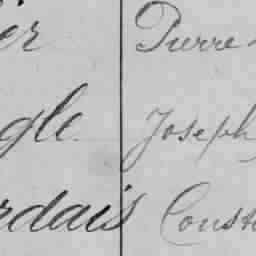 ier Pierre
gle Joseph
rdais Const